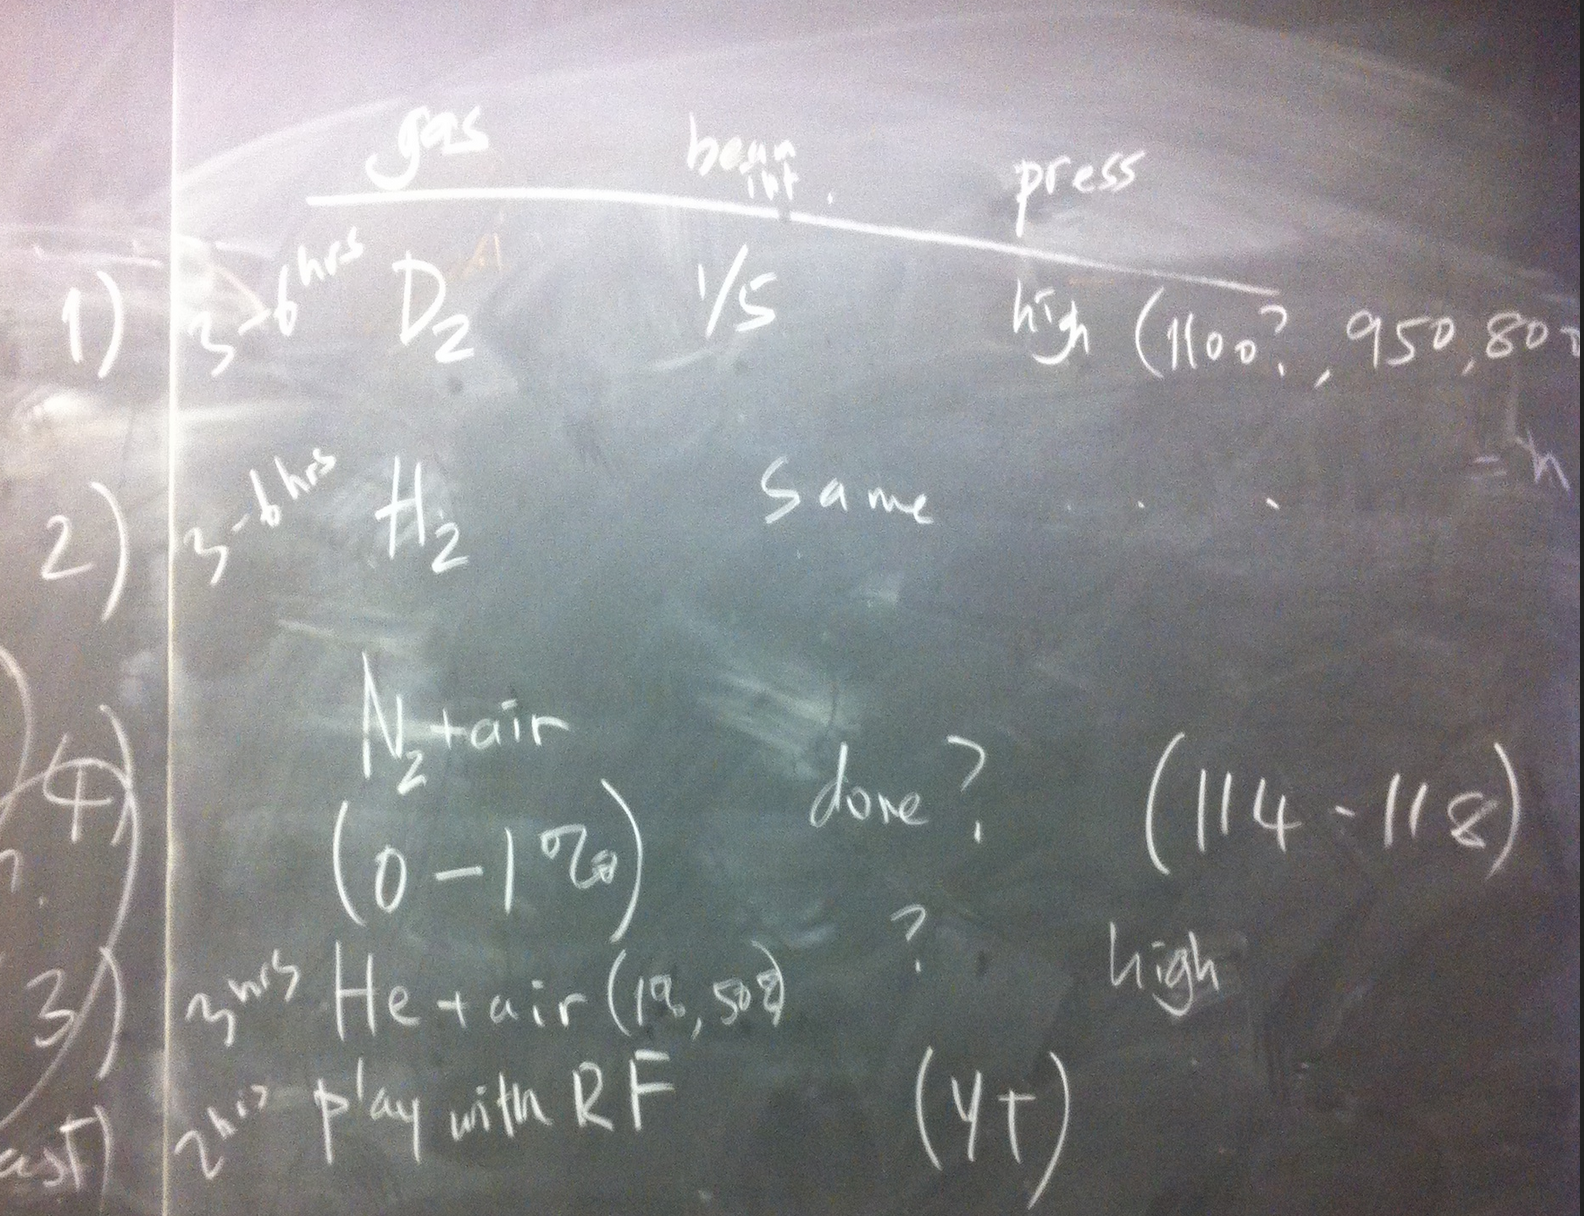 gas beam int. press
1) 3-6 hrs D2 1/5 high (1100?, 950, 800
= h
2) 3-6 hrs H2 same . . .
4) N2+air done? (114-118)
(0-1%)
3) 3 hrs He+air (1%, 50%) ? high
2 hrs play with RF (YT)